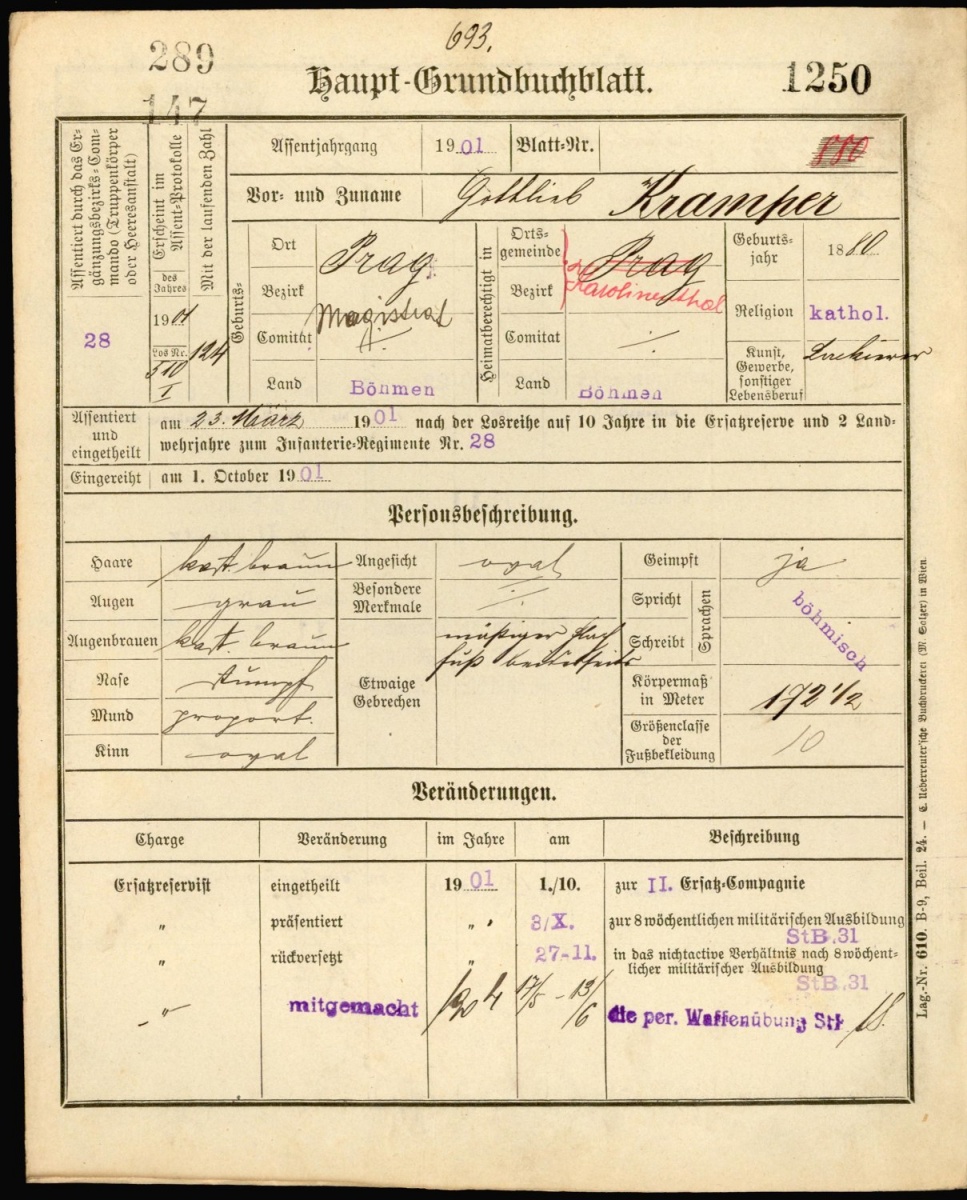 693.
289
Haupt-Grundbuchblatt.
1250
147
Assentiert durch das Er-
gänzungsbezirks-Com-
mando (Truppenkörper
oder Heeresanstalt)
28
Erscheint im
Assent-Protokolle
des
Jahres
1901
Los Nr.
510
I
Mit der laufenden Zahl
124
Assentjahrgang 1901 Blatt-Nr.
Vor- und Zuname Gottlieb Kramper
Geburts-
Ort Prag
Bezirk Magistrat
Comitat ·/·
Land Böhmen
Heimatberechtigt in
Orts-
gemeinde Prag
Bezirk Karolinenthal
Comitat ·/·
Land Böhmen
Geburts-
jahr 1880
Religion kathol.
Kunst,
Gewerbe,
sonstiger
Lebensberuf
Lackierer
Assentiert
und
eingetheilt
am 23. März 1901 nach der Losreihe auf 10 Jahre in die Ersatzreserve und 2 Land-
wehrjahre zum Infanterie-Regimente Nr. 28
Eingereiht am 1. October 1901
Personsbeschreibung.
Haare kast. braun
Augen grau
Augenbrauen kast. braun
Nase stumpf
Mund proport.
Kinn oval
Angesicht oval
Besondere
Merkmale ·/·
Etwaige
Gebrechen
mäßiger Plat
fuß beiderseits
Geimpft ja
Spricht
Schreibt
Sprachen
böhmisch
Körpermaß
in Meter 172 1/2
Größenclasse
der
Fußbekleidung
10
Veränderungen.
Charge Veränderung im Jahre am Beschreibung
Ersatzreservist eingetheilt 1901 1./10. zur II. Ersatz-Compagnie
" präsentiert " " 3/X. zur 8 wöchentlichen militärischen Ausbildung
StB.31
" rückversetzt " 27-11. in das nichtactive Verhältnis nach 8 wöchent-
licher militärischer Ausbildung
StB.31
" mitgemacht 1904 17/5 - 13/6 die per. Waffenübung StB 18.
Lag.-Nr. 610. B-9, Beil. 24. — C. Ueberreuter'sche Buchdruckerei (M. Salzer) in Wien.